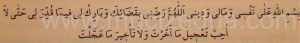 بِسْمِ اللهِ عَلَى نَفْسِي وَمَالِي وَدِينِي اَللّٰهُمَّ رَضِّنِي بِقَضَائِكَ وَبَارِكْ لِي فِيمَا قُدِّرَ لِي حَتّٰى لَا
اُحِبَّ تَعْجِيلَ مَا اَخَّرْتَ وَلَا تَأْخِيرَ مَا عَجَّلْتَ